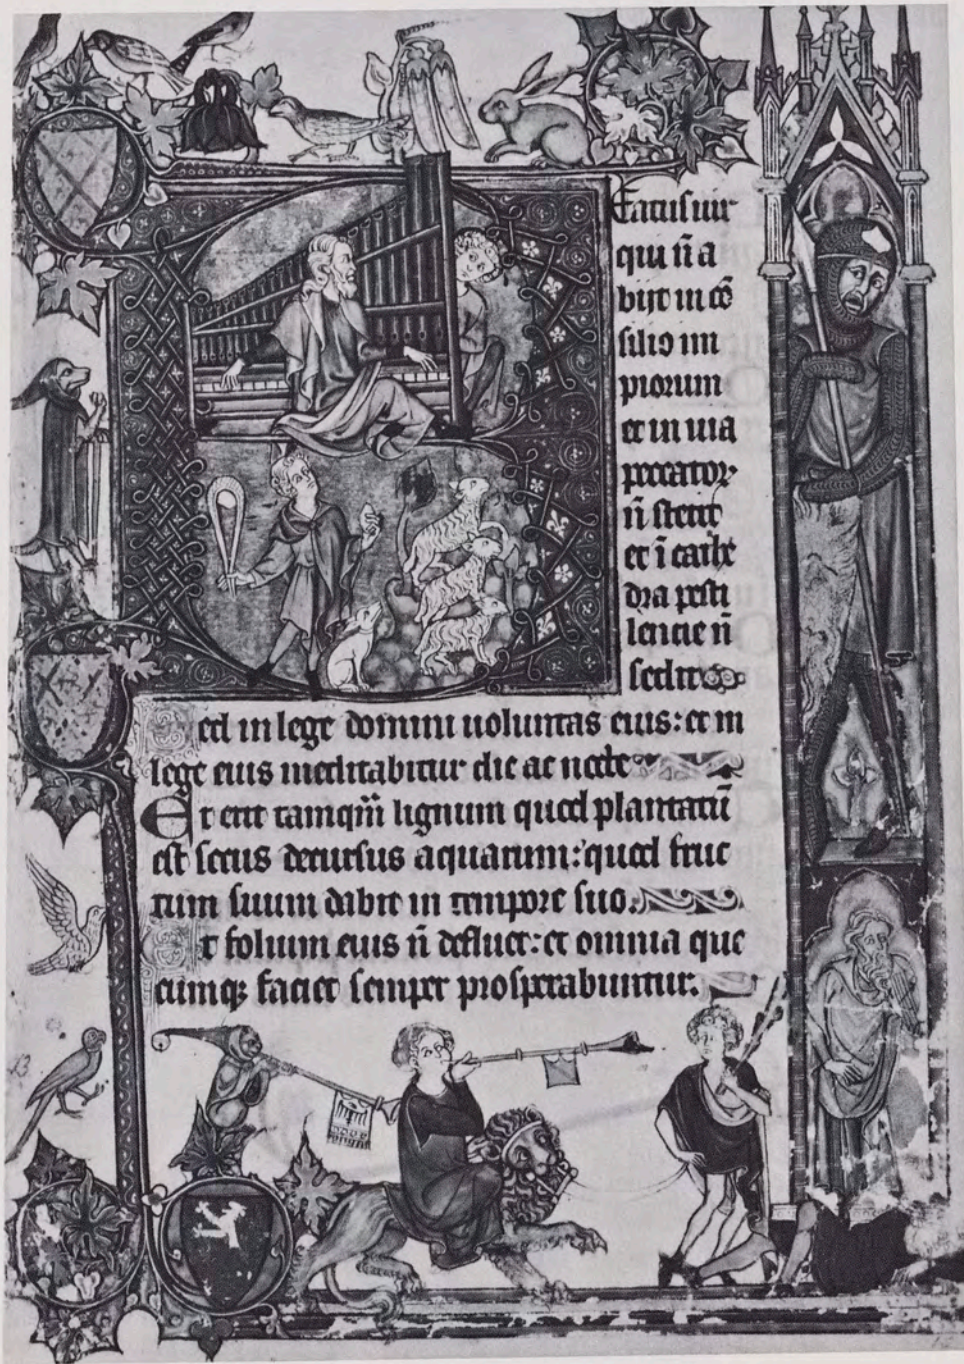 Eatus uir
qui n̄ a
bijt in cō
silio im
piorum
et in uia
peccatoꝝ
n̄ stetit
et ī cathe
dra pesti
lencie n̄
sedit
Sed in lege domini uoluntas eius: et in
lege eius meditabitur die ac nocte
Et erit tamqm̄ lignum quod plantatū
est secus decursus aquarum: quod fruc
tum suum dabit in tempore suo.
Et folium eius n̄ defluet: et omnia que
cumqꝫ faciet semper prosperabuntur.